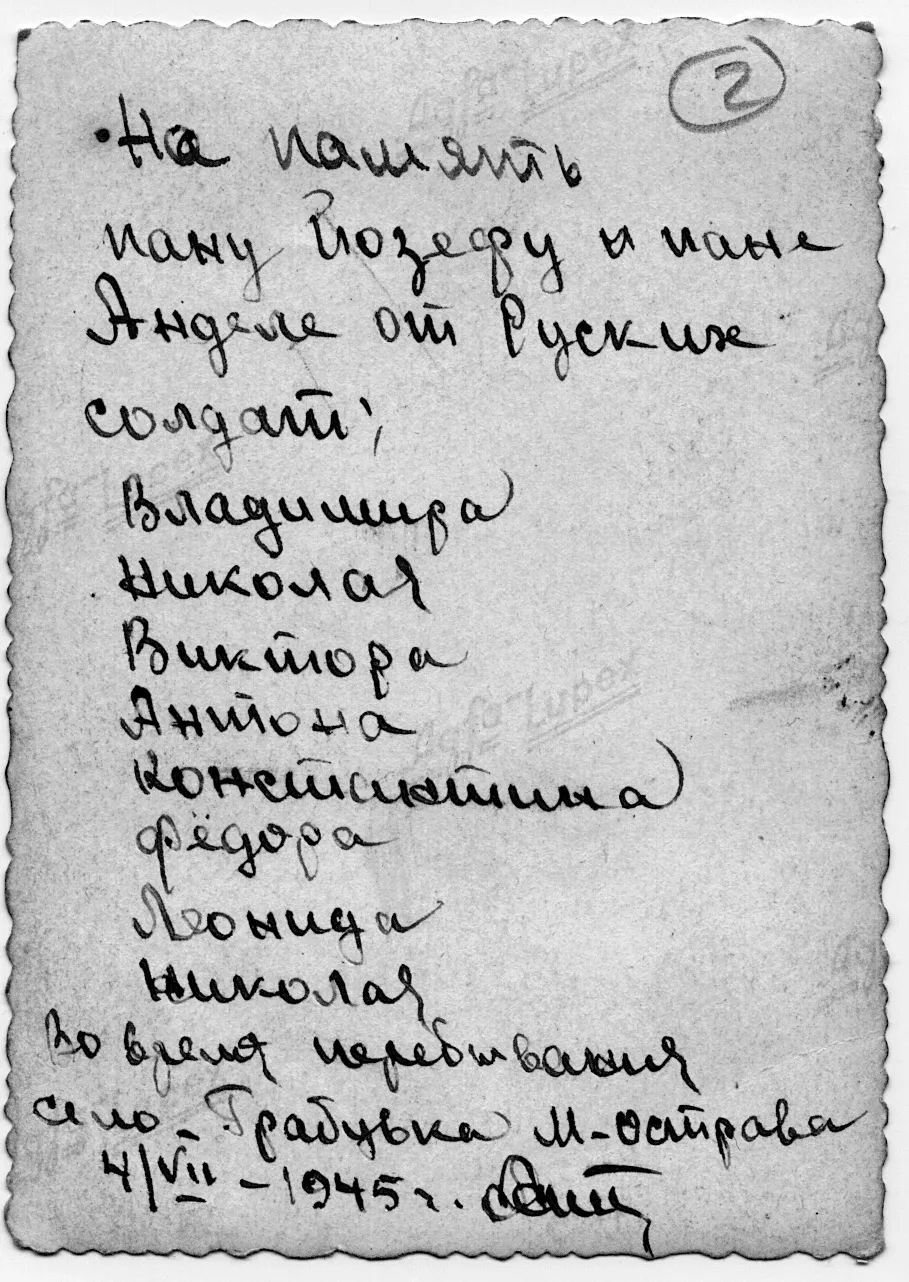 2
На память
пану Йозефу и пане
Анделе от Руских
солдат;
Владимира
Николая
Виктора
Антона
Константина
Фёдора
Леонида
Николая
Во время перебывания
село - Грабувка М-Острава
4/VII - 1945 г.
Agfa-Lupex
Agfa-Lupex
Agfa-Lupex